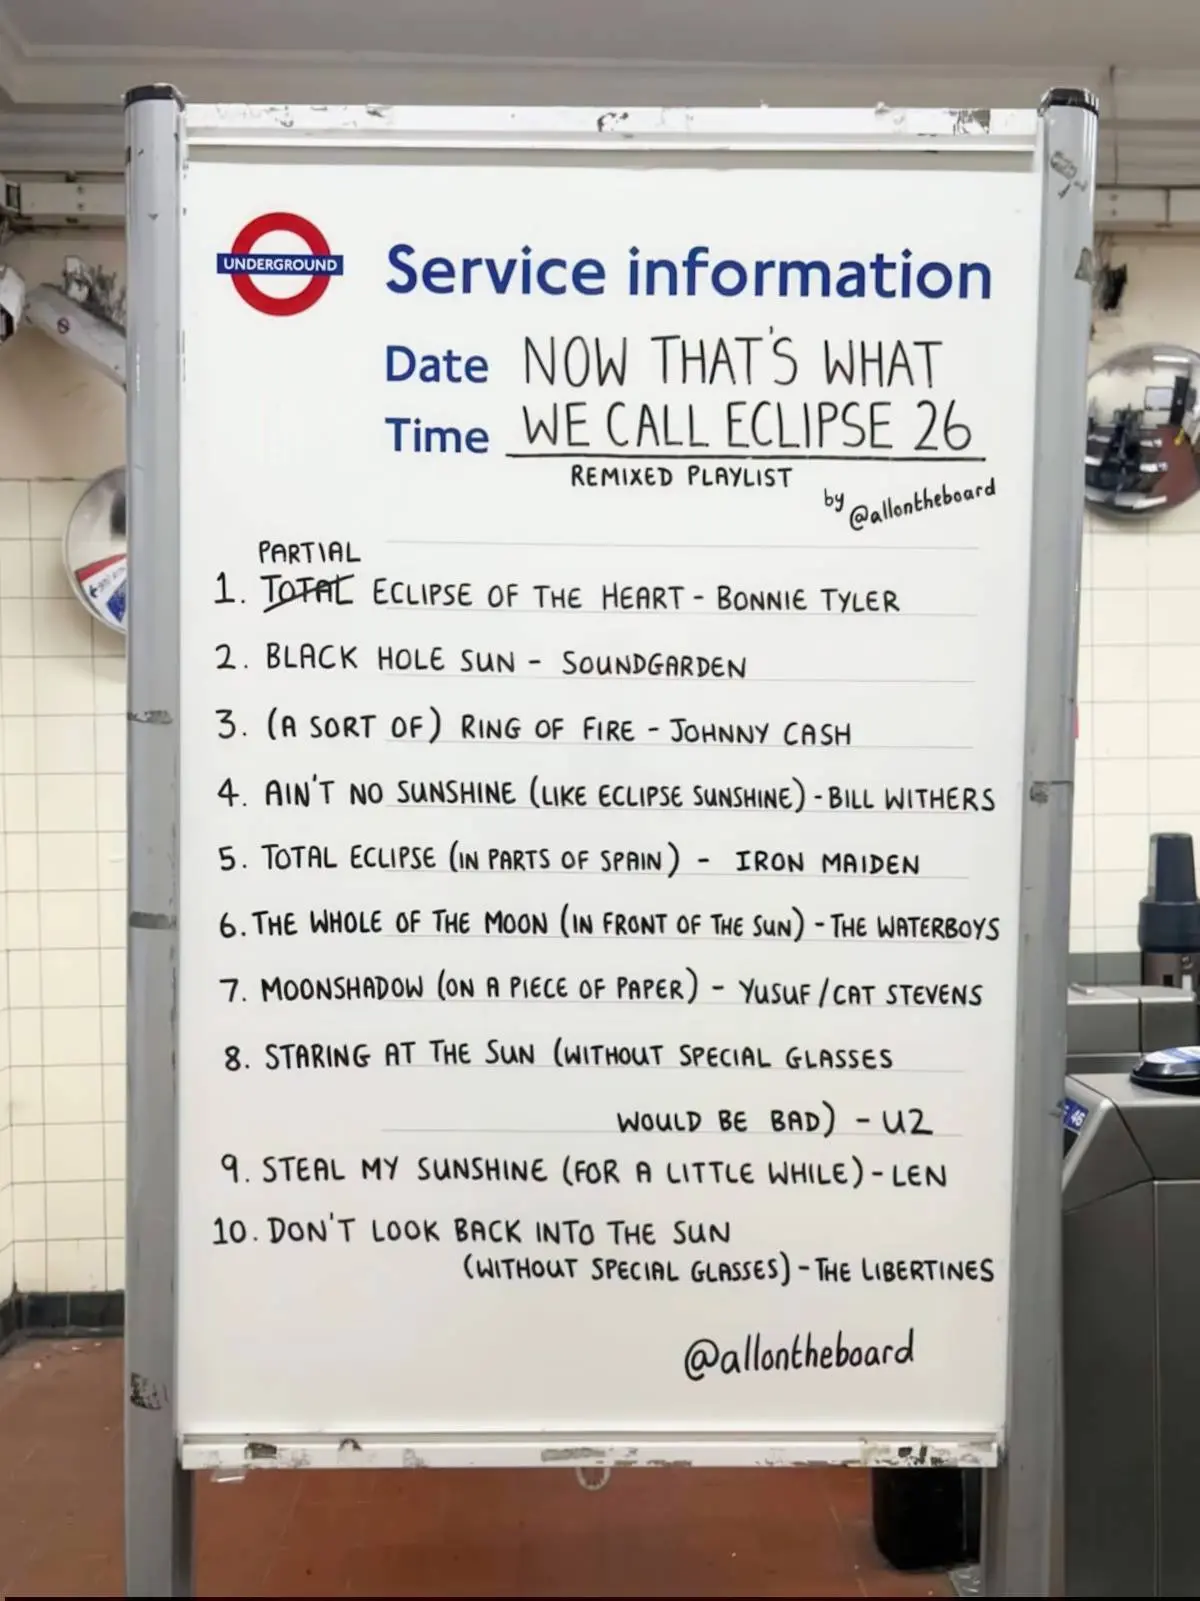 UNDERGROUND
Service information
Date NOW THAT'S WHAT
Time WE CALL ECLIPSE 26
REMIXED PLAYLIST
by @allontheboard
PARTIAL
1. TOTAL ECLIPSE OF THE HEART - BONNIE TYLER
2. BLACK HOLE SUN - SOUNDGARDEN
3. (A SORT OF) RING OF FIRE - JOHNNY CASH
4. AIN'T NO SUNSHINE (LIKE ECLIPSE SUNSHINE) - BILL WITHERS
5. TOTAL ECLIPSE (IN PARTS OF SPAIN) - IRON MAIDEN
6. THE WHOLE OF THE MOON (IN FRONT OF THE SUN) - THE WATERBOYS
7. MOONSHADOW (ON A PIECE OF PAPER) - YUSUF/CAT STEVENS
8. STARING AT THE SUN (WITHOUT SPECIAL GLASSES
WOULD BE BAD) - U2
9. STEAL MY SUNSHINE (FOR A LITTLE WHILE) - LEN
10. DON'T LOOK BACK INTO THE SUN
(WITHOUT SPECIAL GLASSES) - THE LIBERTINES
@allontheboard
46